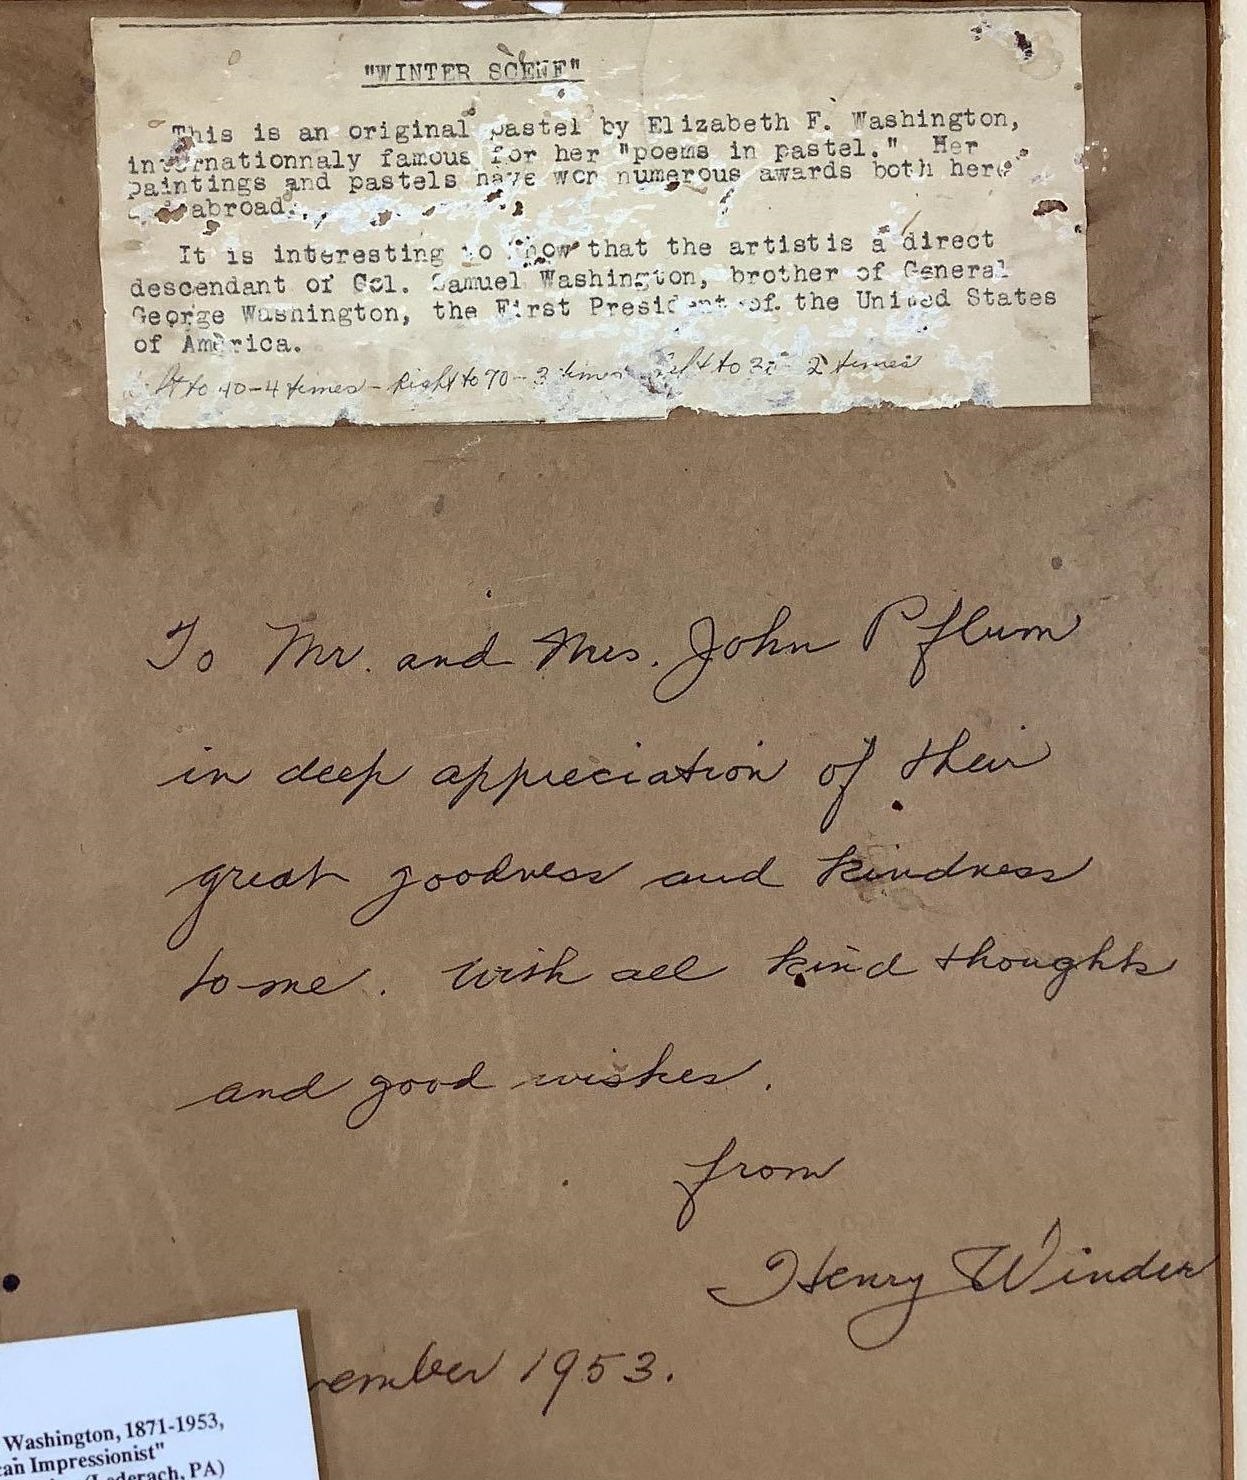 "WINTER SCENE"
This is an original pastel by Elizabeth F. Washington,
internationnaly famous for her "poems in pastel." Her
paintings and pastels have won numerous awards both here
abroad.
It is interesting to know that the artist is a direct
descendant of Col. Samuel Washington, brother of General
George Washington, the First President of the United States
of America.
to 40-4 times - Right to 70-3 times Left to 2 times
To Mr. and Mrs. John Pflum
in deep appreciation of their
great goodness and kindness
to me. With all kind thoughts
and good wishes.
from
Henry Winder
vember 1953.
Washington, 1871-1953,
can Impressionist"
(Lederach, PA)